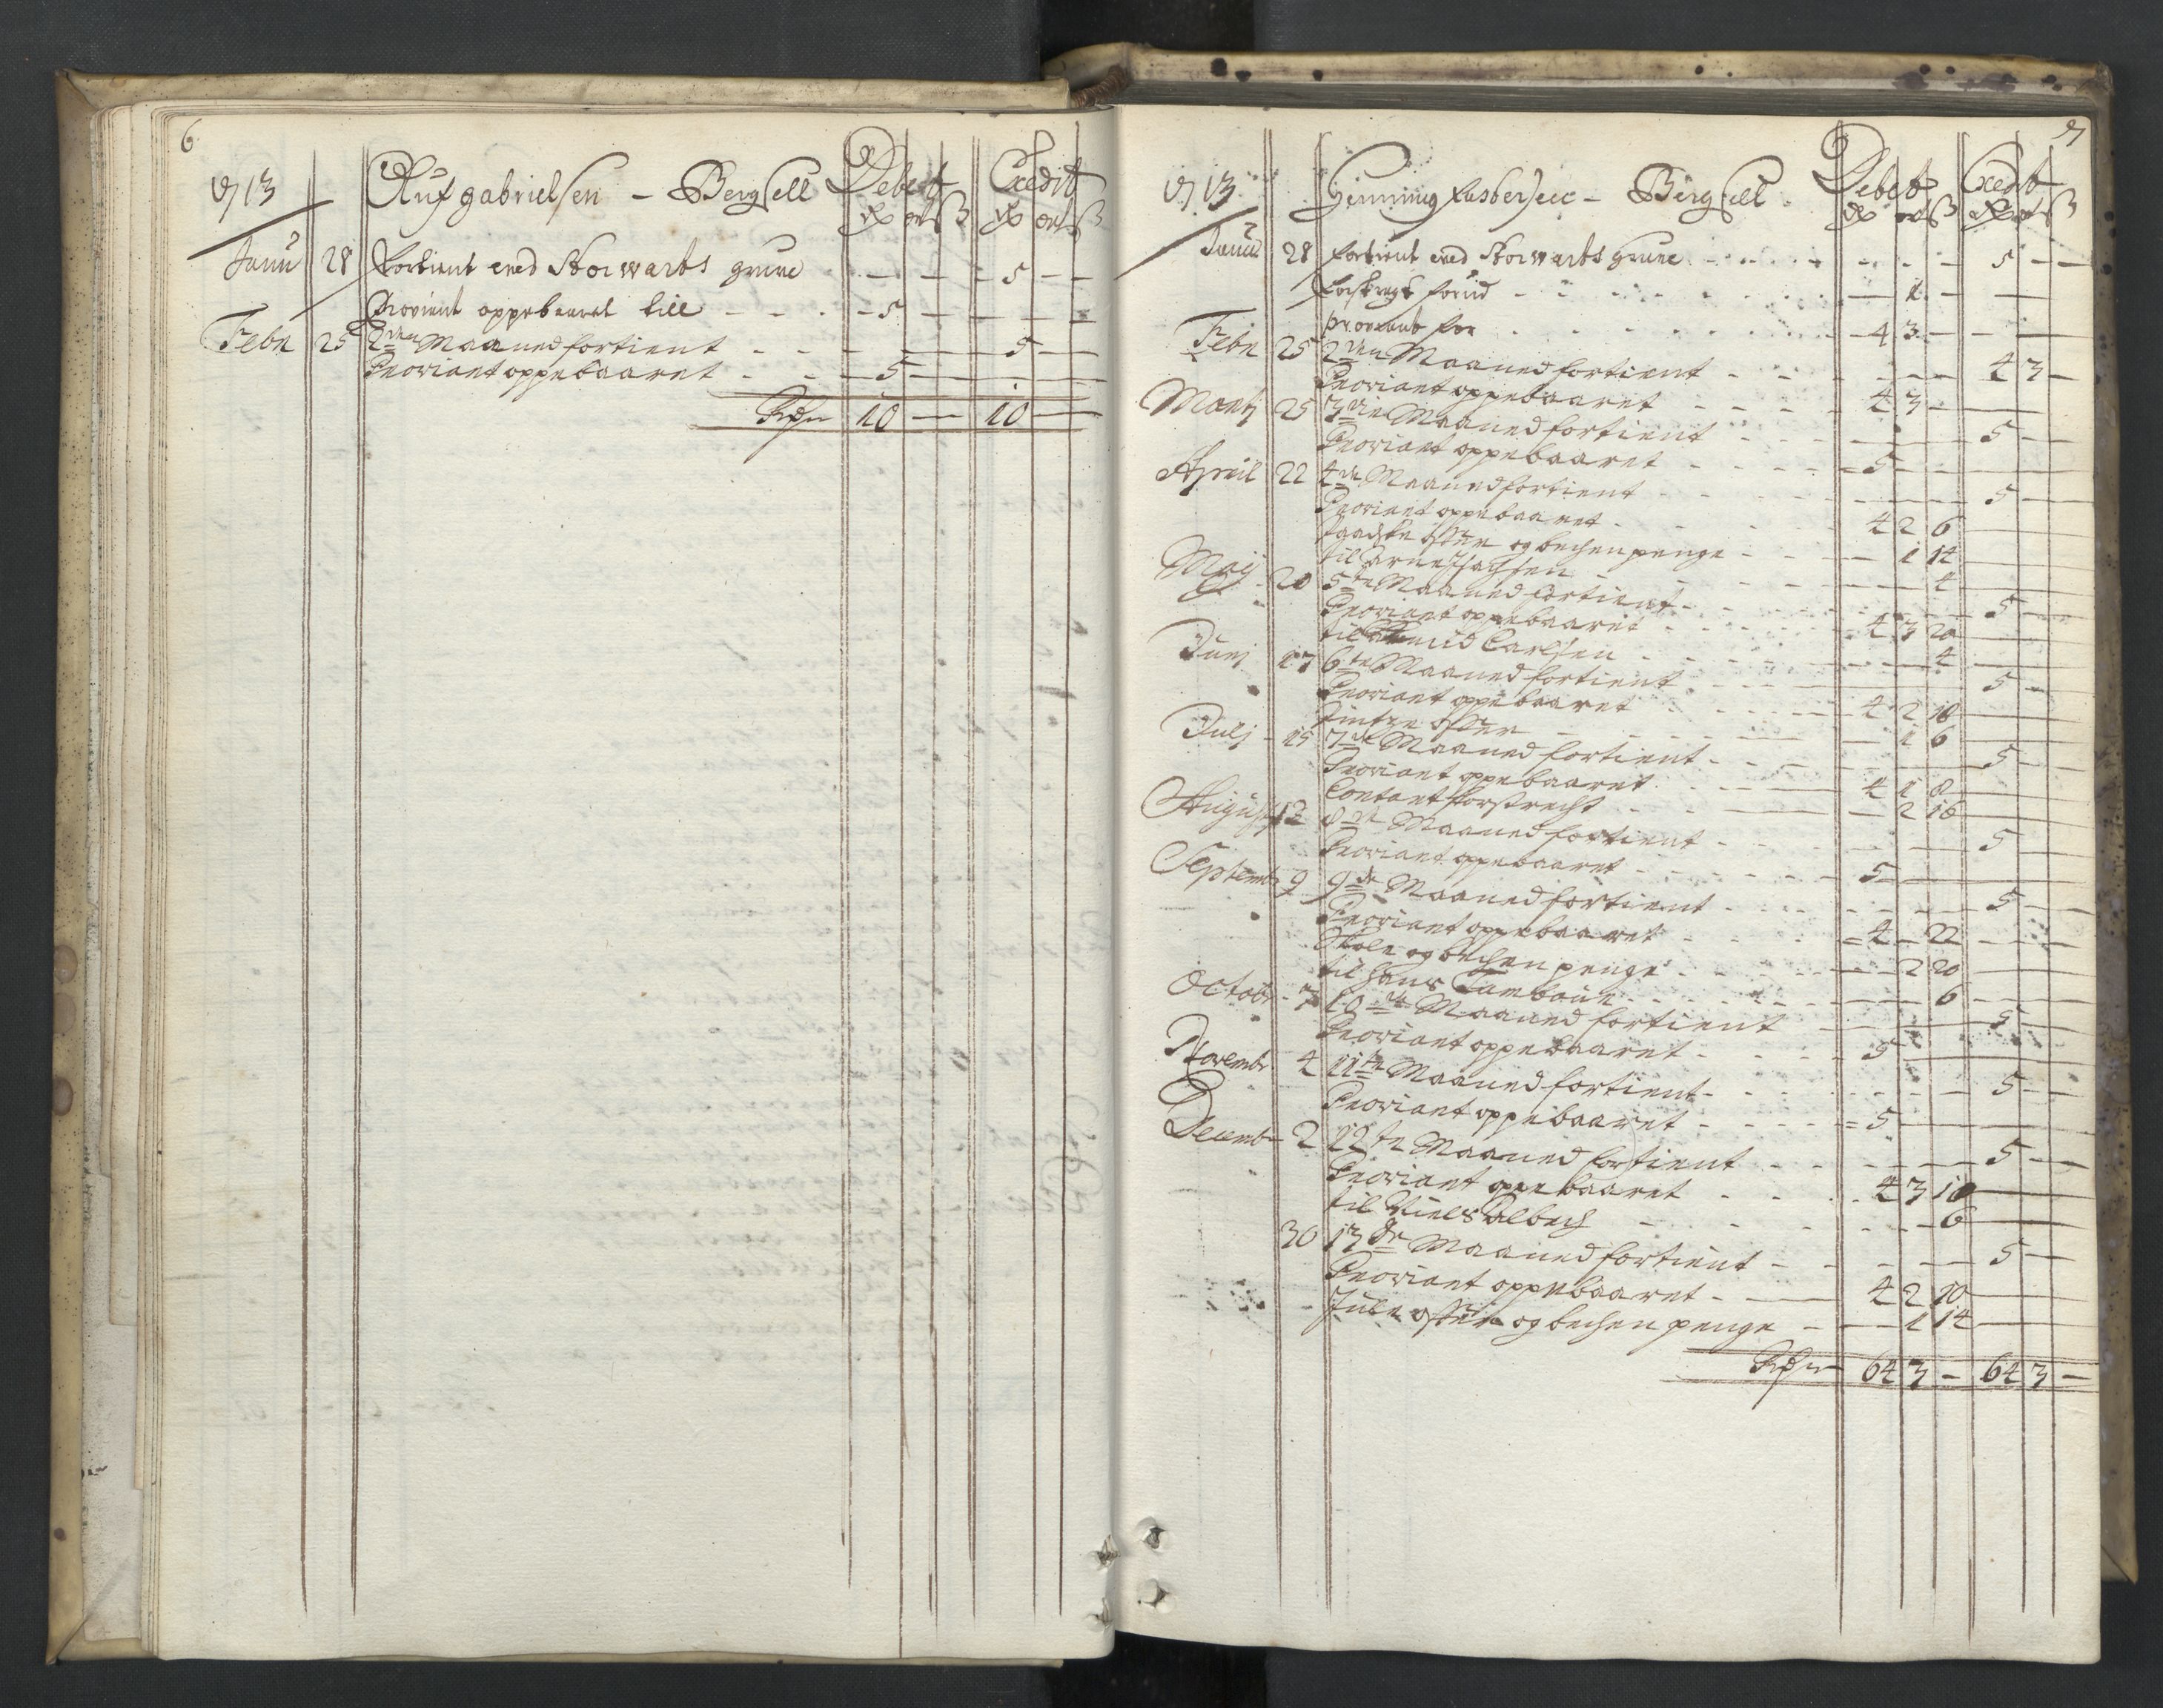 6
1713 Oluf gabrielsen – Bergsell Debet Credit
rd ort ß rd ort ß
Janu 28 Fortient ved Storwarts grune 5
Proviant oppebaaret till 5
Febr 25 2den Maaned fortient 5
Proviant oppebaaret 5
Rdr 10 – 10 –
7
1713 Henning – Bergsell Debet Credit
rd ort ß rd ort ß
Janu 28 fortient ved Storwarts grune 5
forschregt forud 1
proviant for 4 3
Febr 25 2den Maaned fortient 4 3
Proviant oppebaaret 4 3
Martj 25 3die Maaned fortient 5
Proviant oppebaaret 5
Apreil 22 4de Maaned fortient 5
Proviant oppebaaret 4 2 6
Paaske offer og bechen penge 1 14
til Arne 4
Maij 20 5te Maaned fortient 5
Proviant oppebaaret 4 3 20
til Carlsen 4
Junj 17 6te Maaned fortient 5
Proviant oppebaaret 4 2 18
Pintze offer 1 6
Julj 15 7de Maaned fortient 5
Proviant oppebaaret 4 1 8
Contant forstrecht 2 16
August 12 8de Maaned fortient 5
Proviant oppebaaret 5
Septembr 9 9de Maaned fortient 5
Proviant oppebaaret 4 – 22
Skole og bechen penge 2 20
til Hans Tambour 6
Octobr 7 10de Maaned fortient 5
Proviant oppebaaret 5
Novembr 4 11te Maaned fortient 5
Proviant oppebaaret 5
Decembr 2 12te Maaned fortient 5
Proviant oppebaaret 4 3 18
til Niels Albech 6
30 13de Maaned fortient 5
Proviant oppebaaret 4 2 10
Jule offer og bechen penge 1 14
Rdr 64 3 – 64 3 –